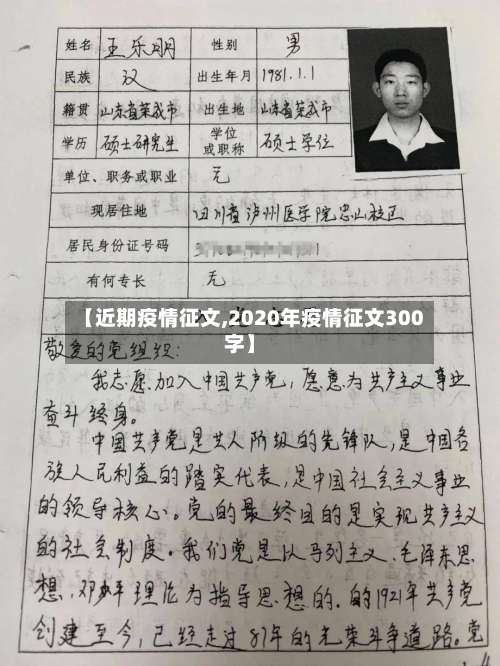 姓名 王乐明 性别 男
民族 汉 出生年月 1981.1.1
籍贯 山东省荣成市 出生地 山东省荣成市
学历 硕士研究生 学位或职称 硕士学位
单位、职务或职业 无
现居住地 四川省泸州医学院忠山校区
居民身份证号码
有何专长 无
【近期疫情征文,2020年疫情征文300
字】
敬爱的党组织:
我志愿加入中国共产党,愿意为共产主义事业
奋斗终身。
中国共产党是工人阶级的先锋队,是中国各
族人民利益的踏实代表,是中国社会主义事业
的领导核心。党的最终目的是实现共产主义
的社会制度。我们党是以马列主义、毛泽东思
想,邓小平理论为指导思想的。的1921年共产党
创建至今,已经走过87年的光荣斗争道路。党